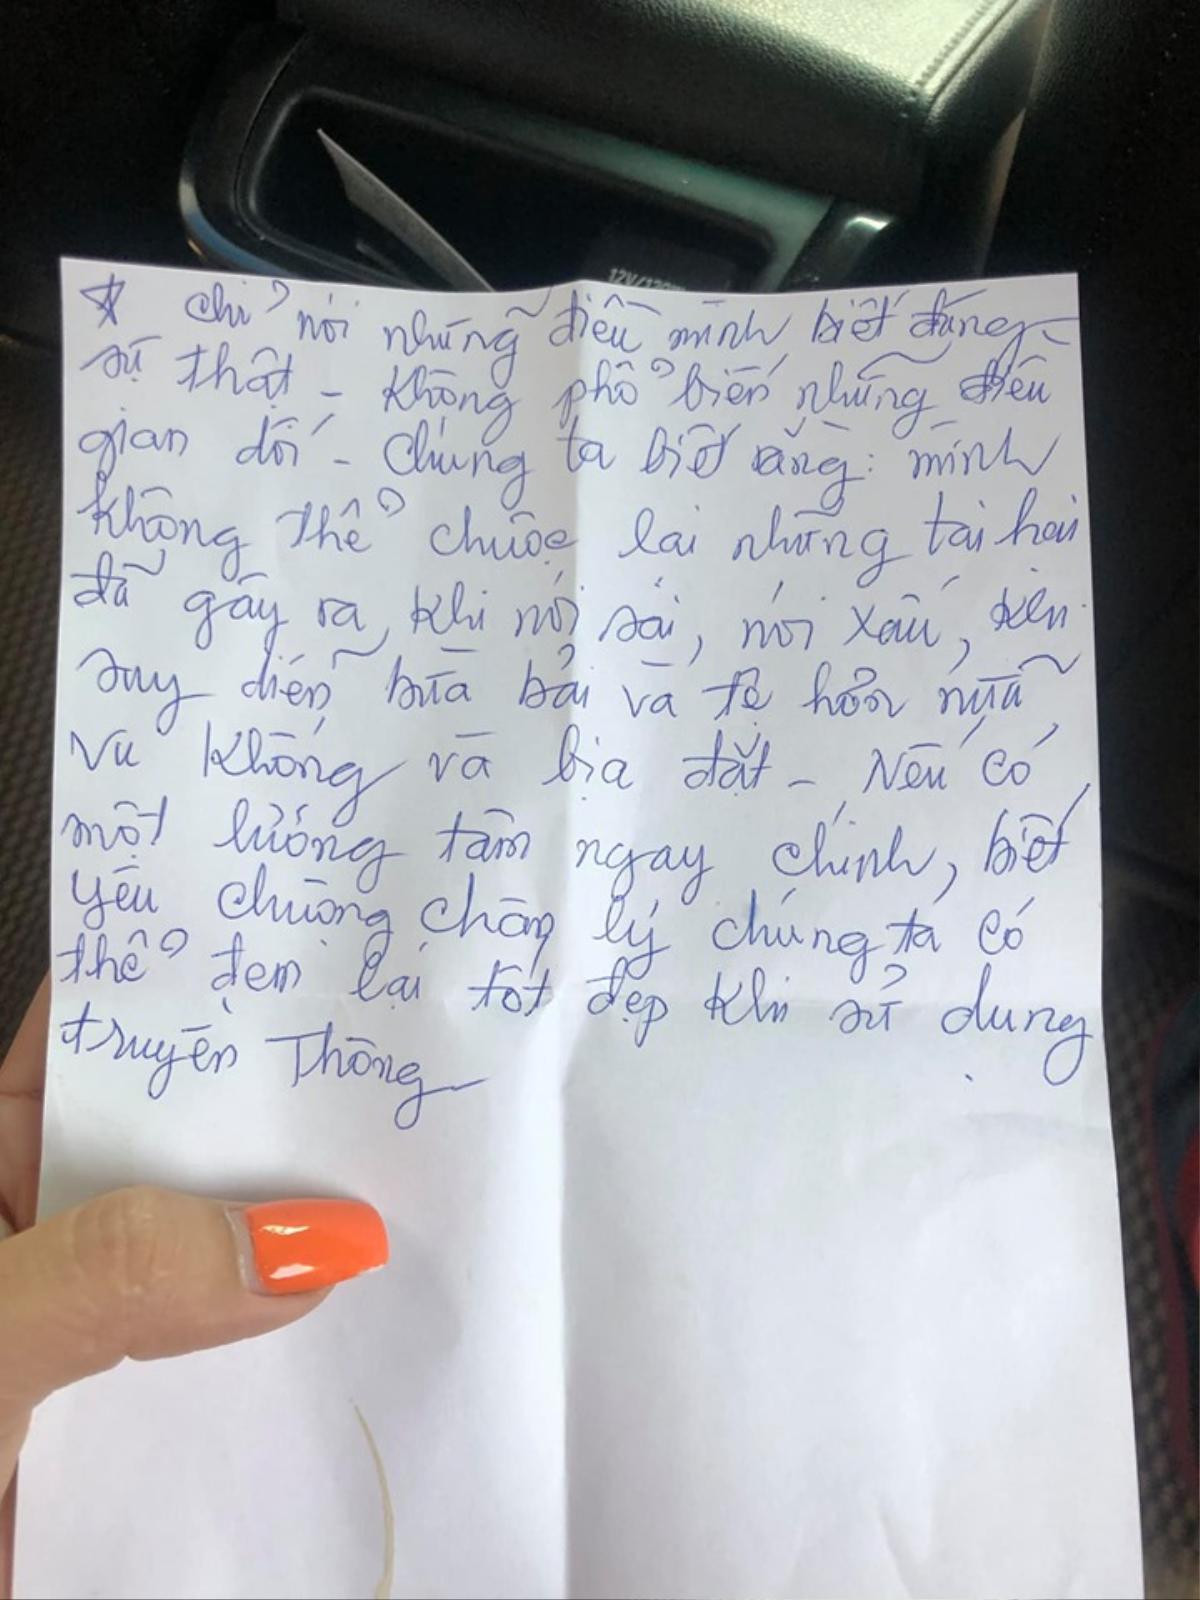 12V/120W
☆ chỉ nói những điều mình biết đúng
sự thật - không phổ biến những điều
gian dối - chúng ta biết rằng: mình
không thể chuộc lại những tai hại
đã gây ra, khi nói sai, nói xấu,
suy diễn bừa bải và tệ hơn nữa
vu khống và bịa đặt - Nếu có
một lương tâm ngay chính, biết
yêu chuộng chân lý chúng ta có
thể đem lại tốt đẹp khi sử dụng
truyền Thông